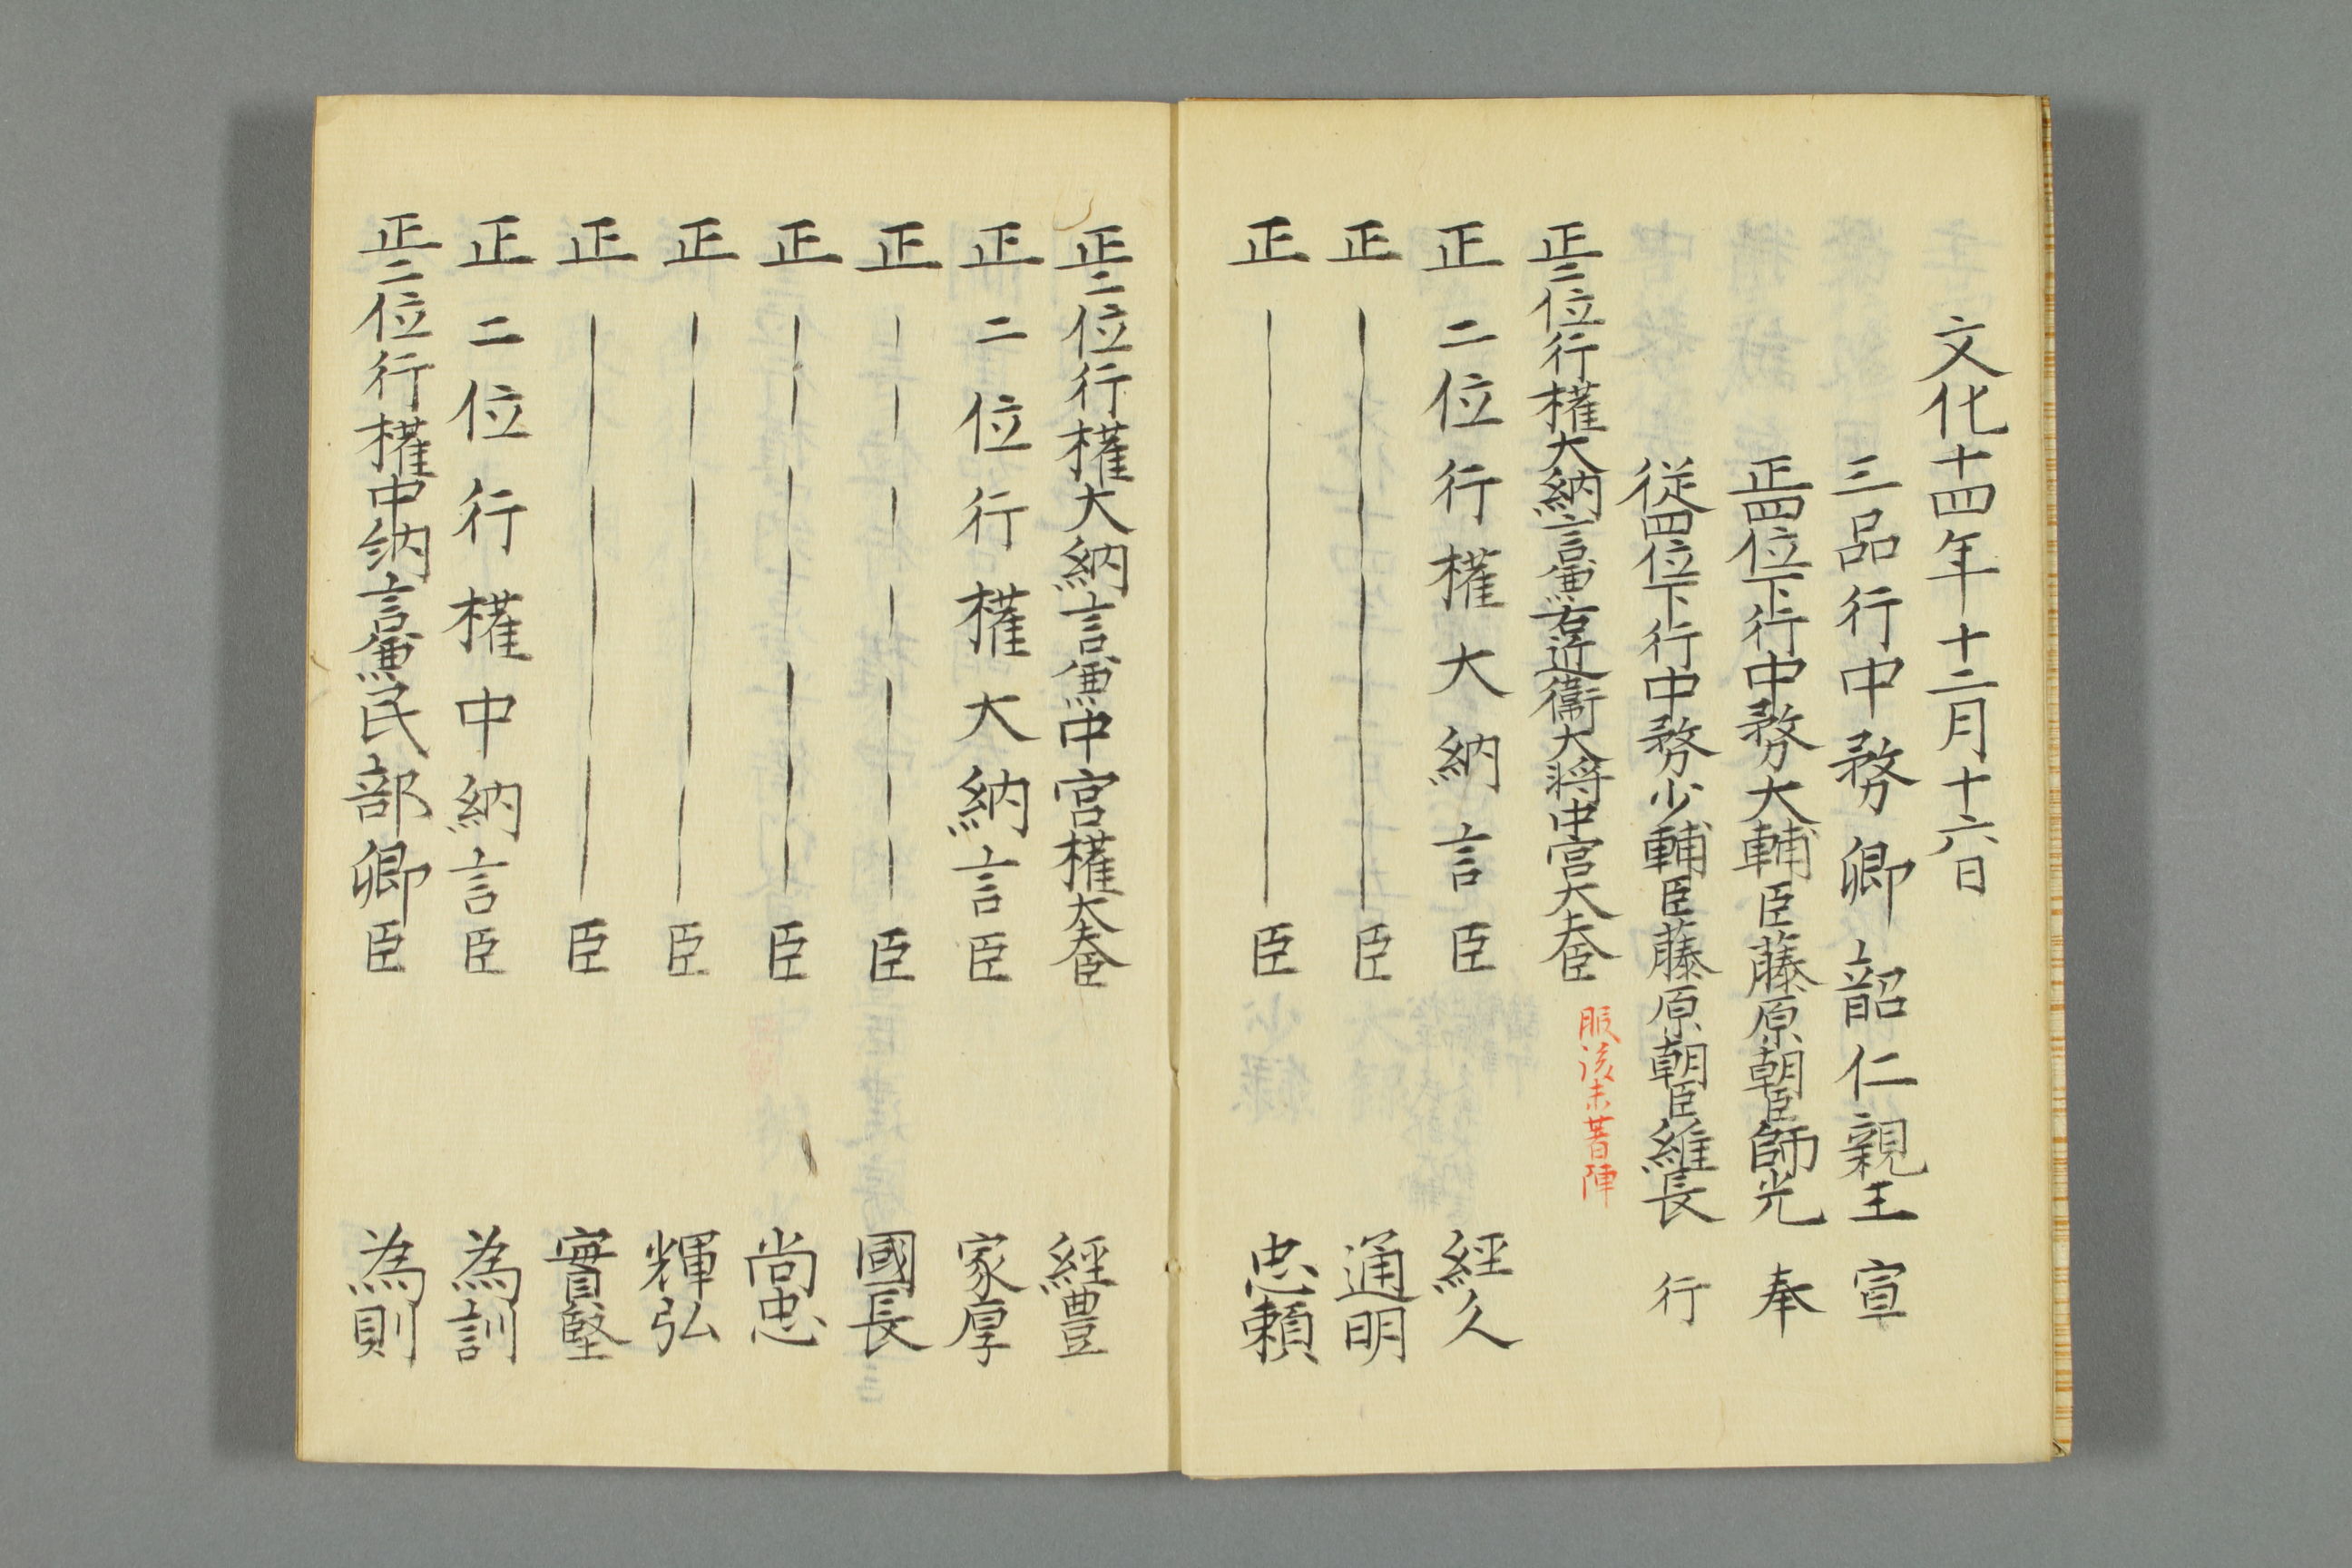 文化十四年十二月十六日
三品行中務卿韶仁親王 宣
正四位下行中務大輔臣藤原朝臣師光 奉
従四位下行中務少輔臣藤原朝臣維長 行
正二位行權大納言兼右近衛大将中宮大夫臣 服後未著陣
正二位行權大納言臣 經久
正 臣 通明
正 臣 忠頼
正二位行權大納言兼中宮權大夫臣 經豊
正二位行權大納言臣 家厚
正 臣 國長
正 臣 尚忠
正 臣 輝弘
正 臣 實堅
正二位行權中納言臣 為訓
正二位行權中納言兼民部卿臣 為則